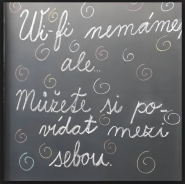 Wi-fi nemáme,
ale...
Můžete si po-
vídat mezi
sebou.